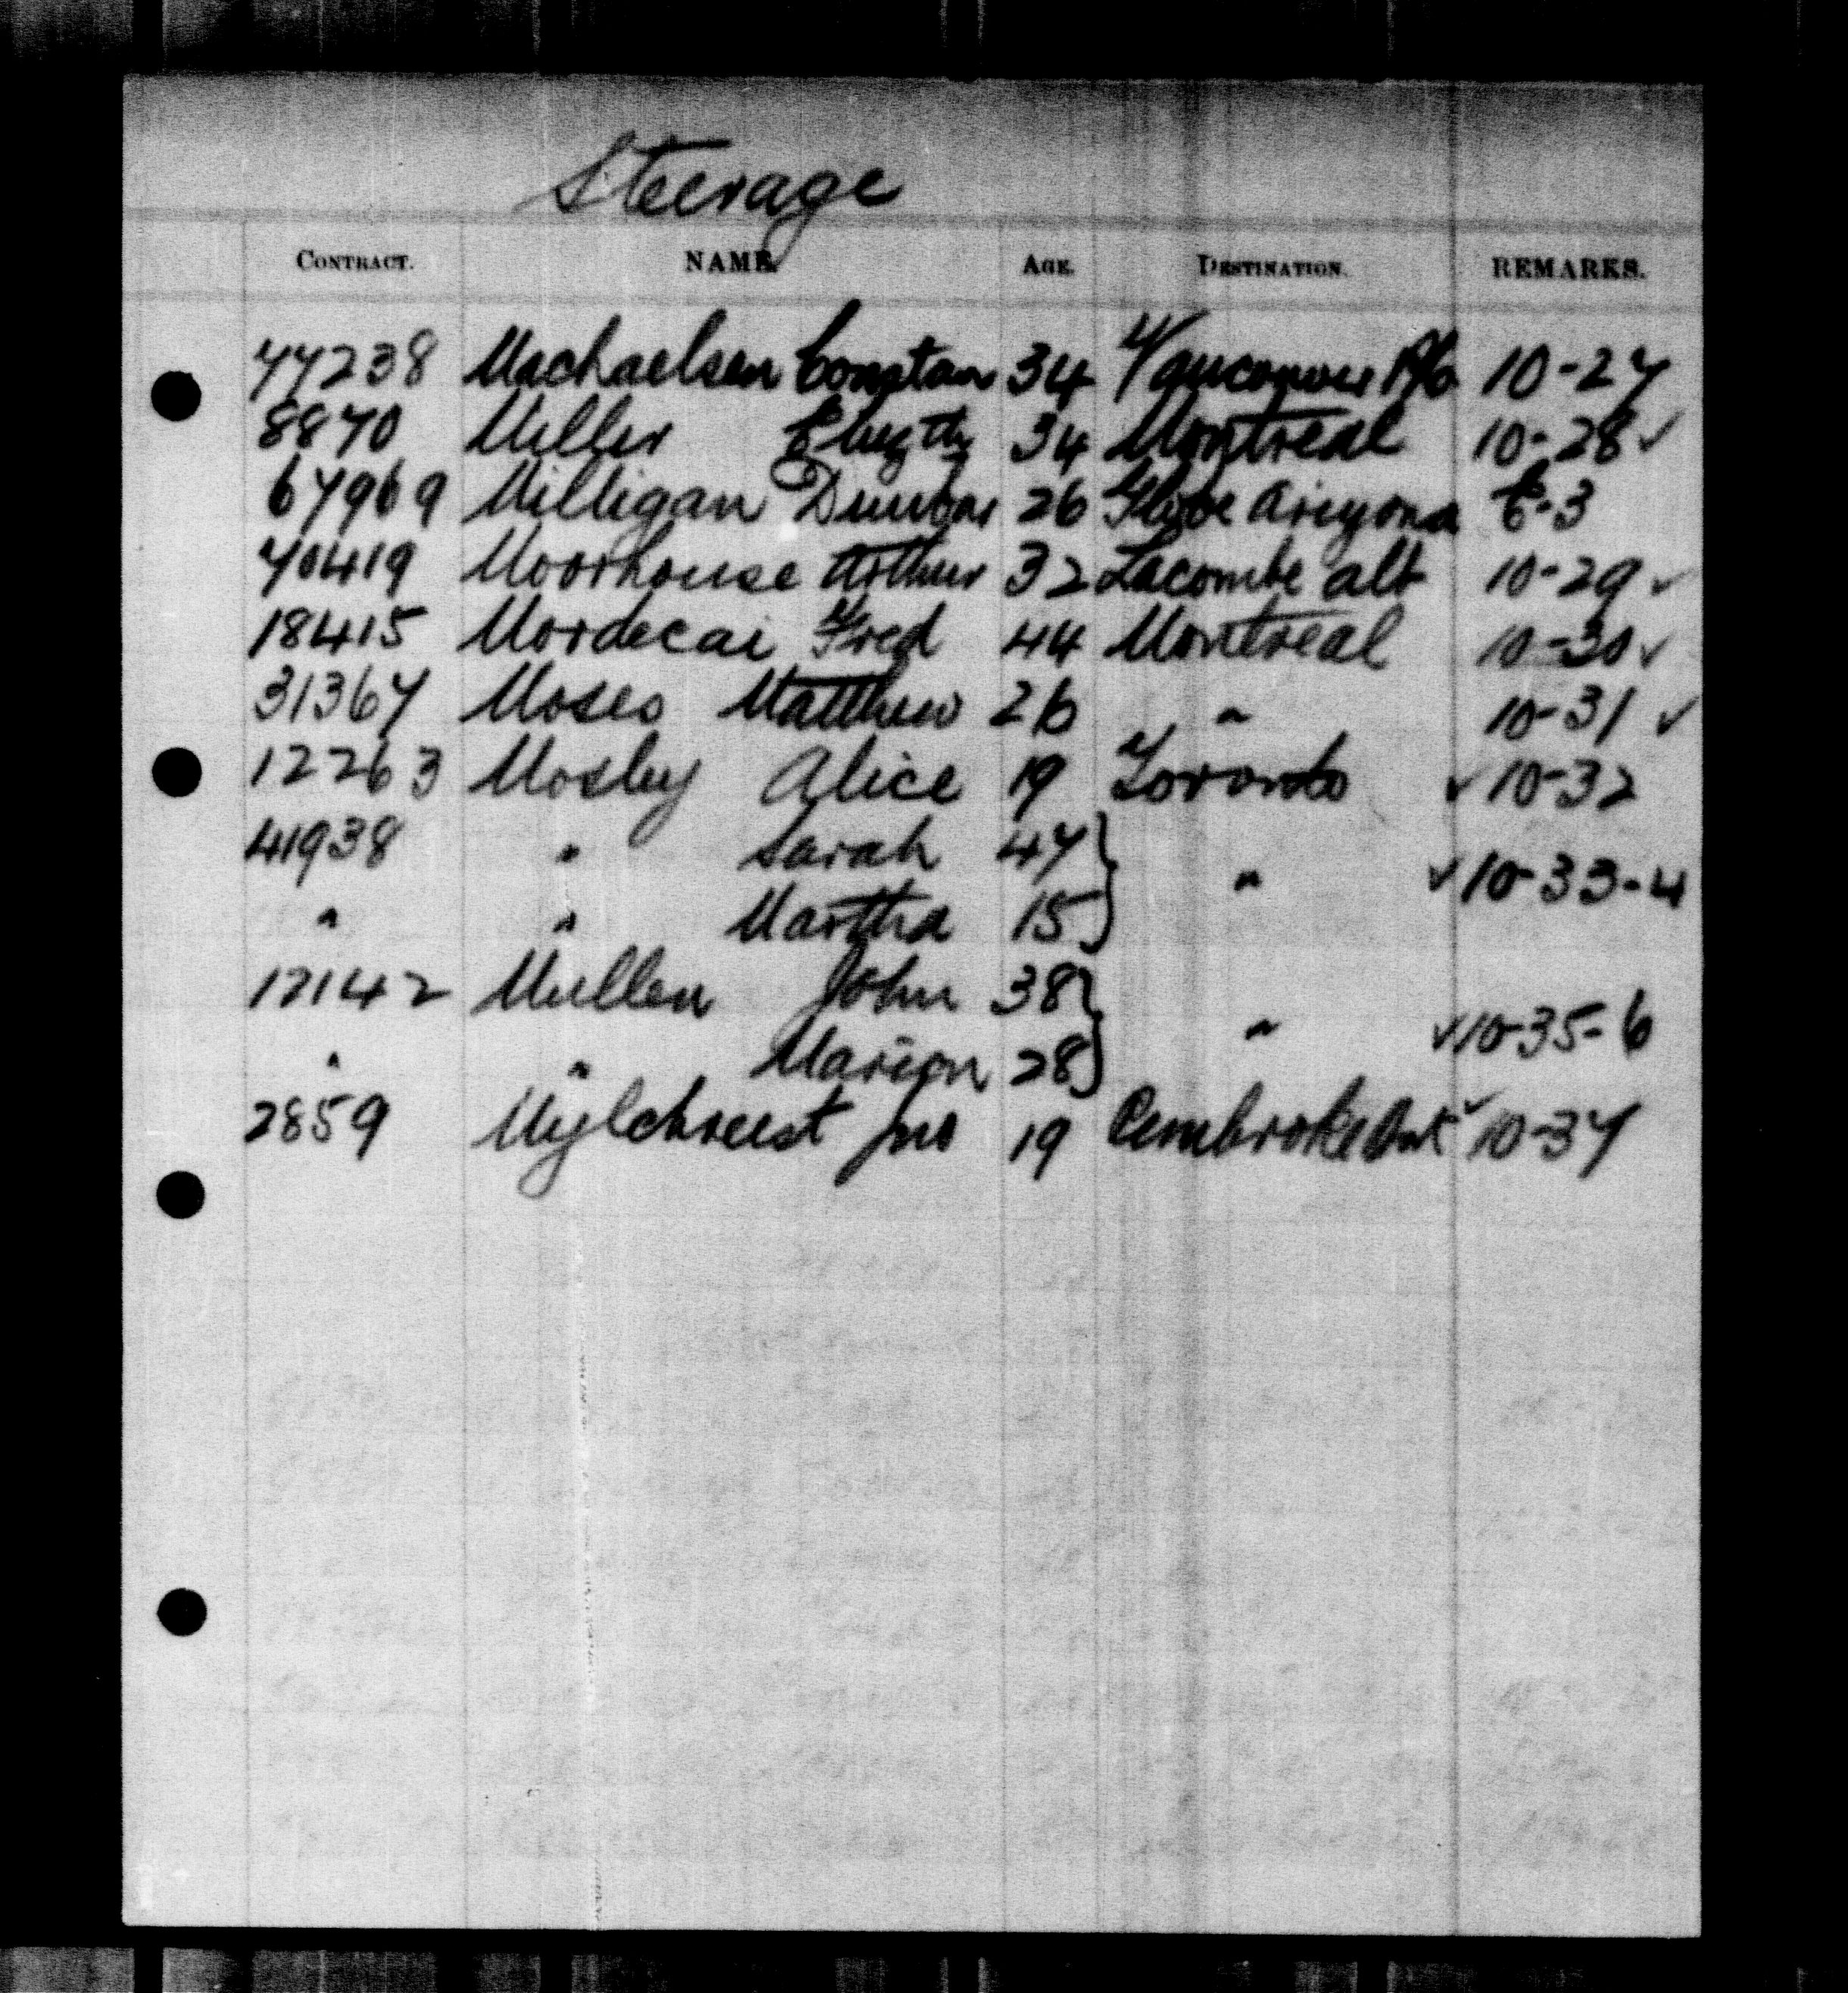 Steerage
CONTRACT. NAME. AGE. DESTINATION. REMARKS.
77238 Machaelsen Constan 34 Vancouver B/C 10-27
8870 Miller Elizth 34 Montreal 10-28 ✓
67969 Milligan Duncan 26 Globe Arizona E-3
70419 Moorhouse Arthur 32 Lacombe alt 10-29 ✓
18415 Mordecai Fred 44 Montreal 10-30 ✓
31367 Moses Matthew 26 " 10-31 ✓
12263 Mosley Alice 19 Toronto ✓ 10-32
41938 " Sarah 47 } " ✓ 10-33-4
" " Martha 15 }
12142 Mullen John 38 } " ✓ 10-35-6
" " Marion 28 }
2859 Mylchreest Jno 19 Pembroke Ont ✓ 10-37